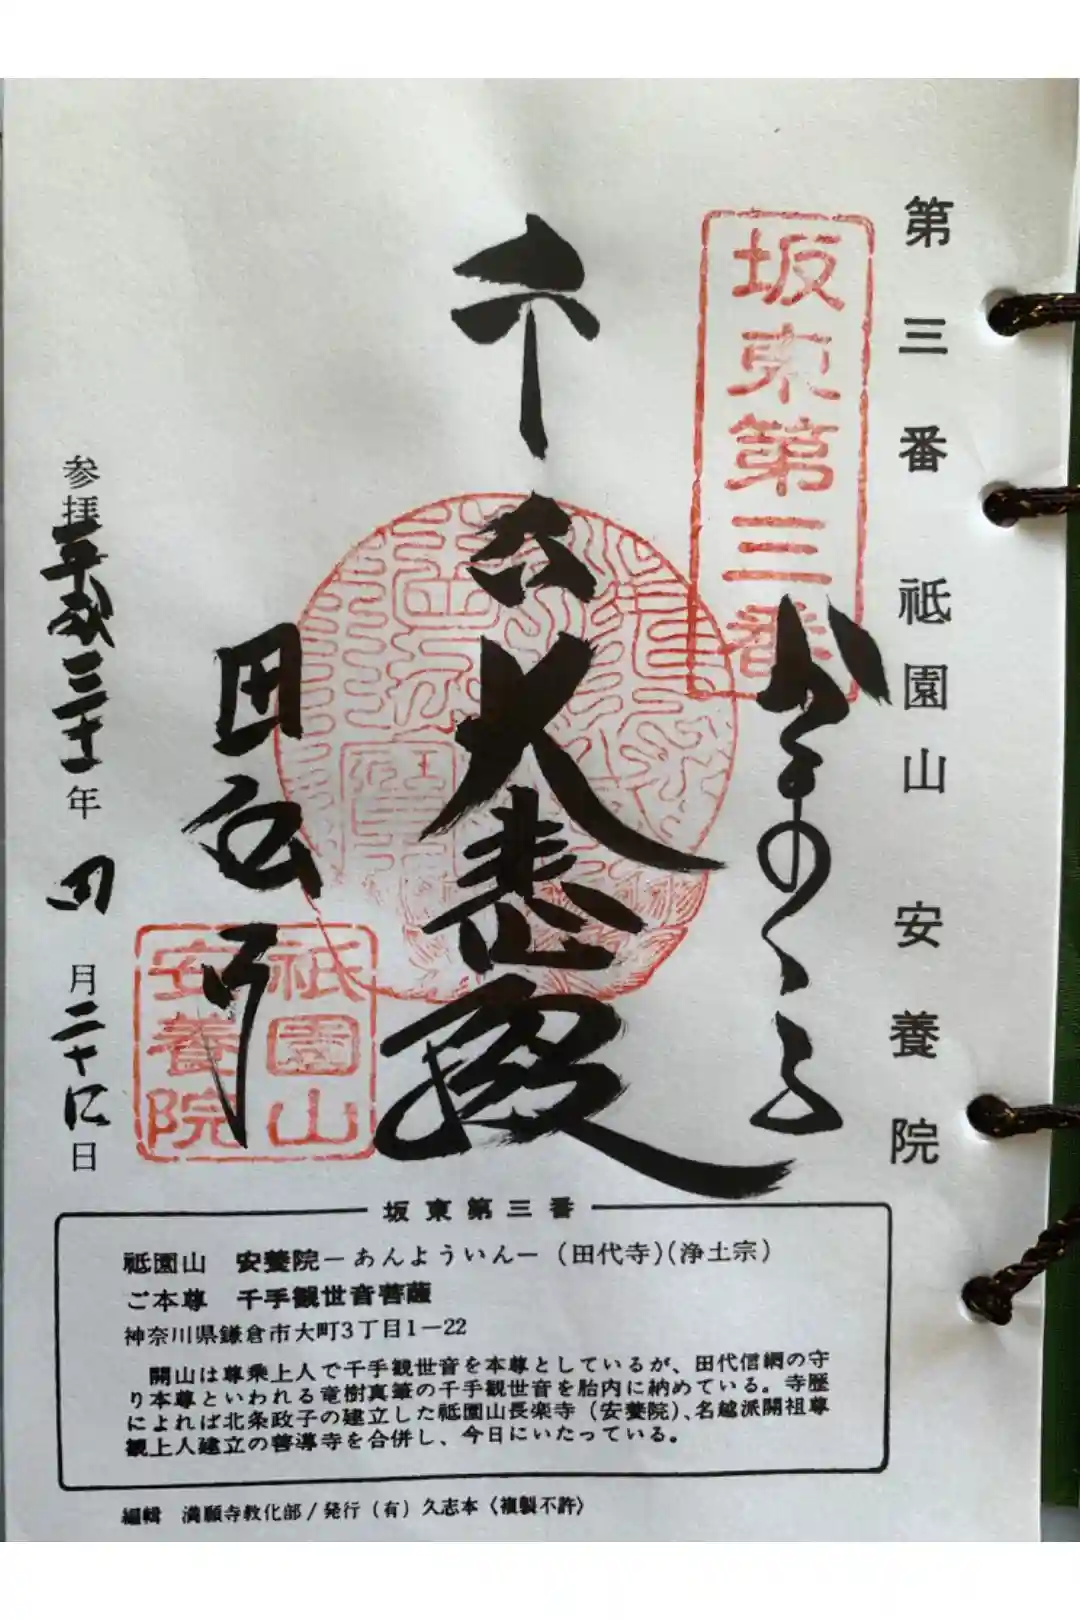 第三番 祗園山 安養院
坂東第三番
かまくら
千手
大悲殿
田代寺
祗園山
安養院
参拝平成三十年四月二十八日
坂東第三番
祗園山 安養院−あんよういん−(田代寺)(浄土宗)
ご本尊 千手観世音菩薩
神奈川県鎌倉市大町3丁目1−22
開山は尊乗上人で千手観世音を本尊としているが、田代信綱の守
り本尊といわれる竜樹真筆の千手観世音を胎内に納めている。寺歴
によれば北条政子の建立した祗園山長楽寺(安養院)、名越派開祖尊
観上人建立の善導寺を合併し、今日にいたっている。
編輯 満願寺教化部/発行(有)久志本〈複製不許〉